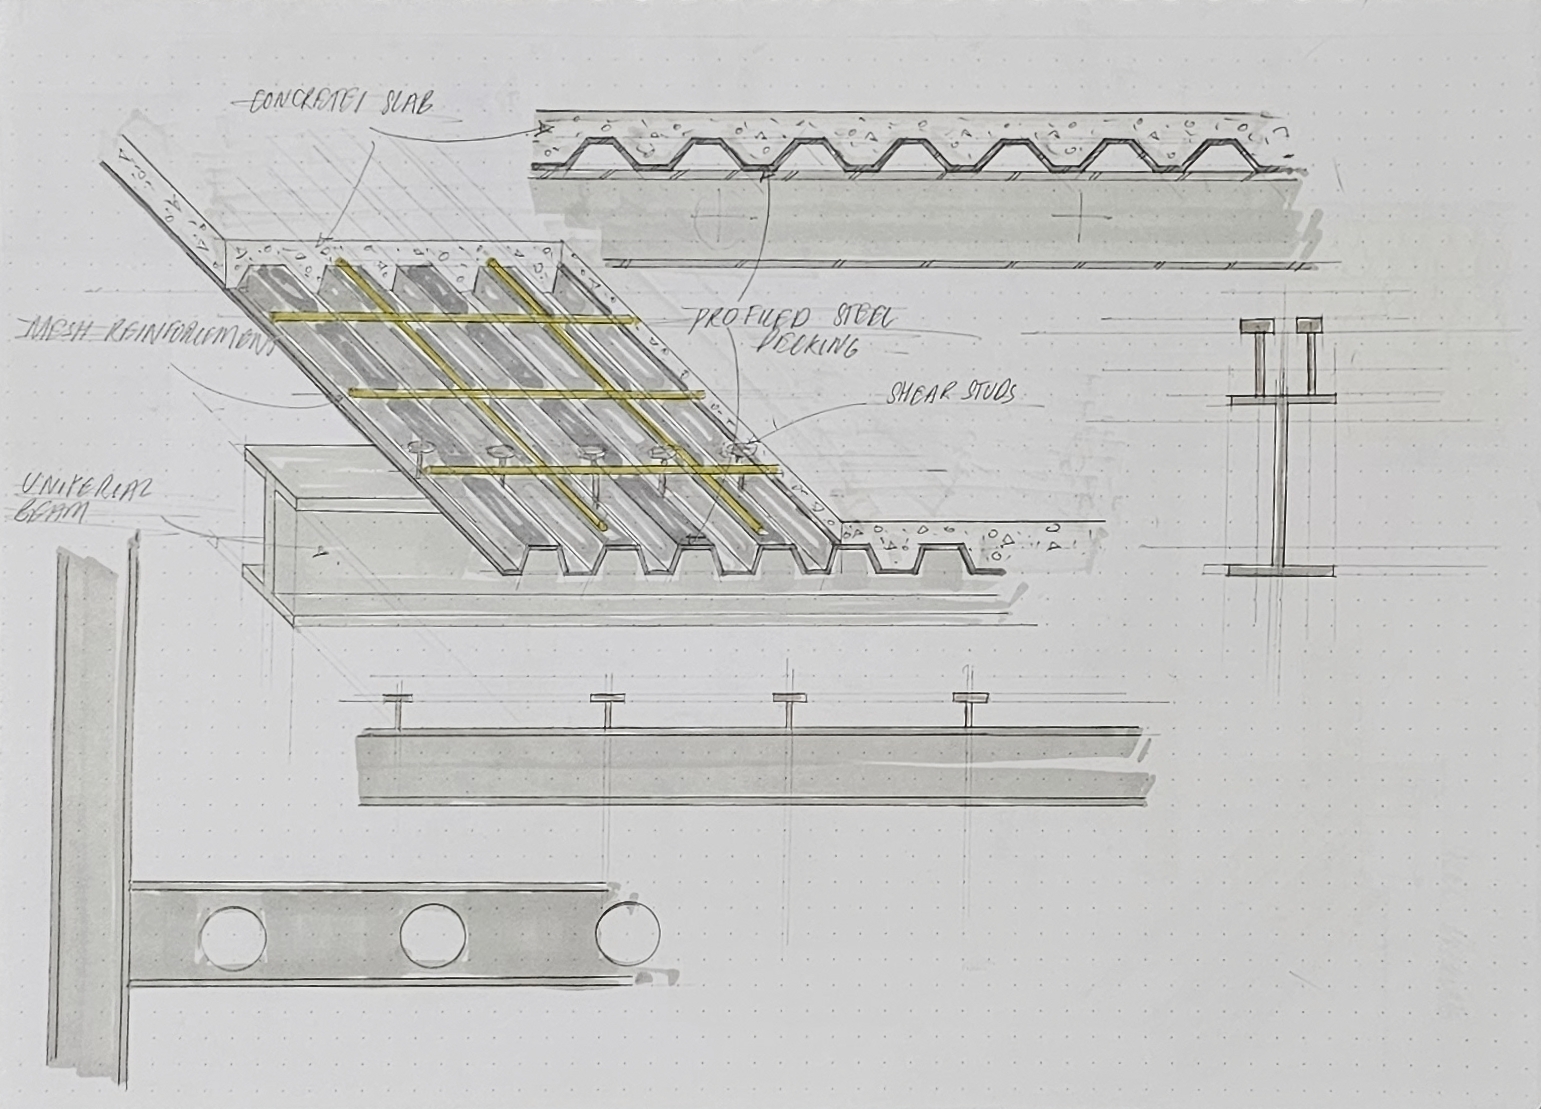 CONCRETE SLAB
MESH REINFORCEMENT
PROFILED STEEL
DECKING
SHEAR STUDS
UNIVERSAL
BEAM